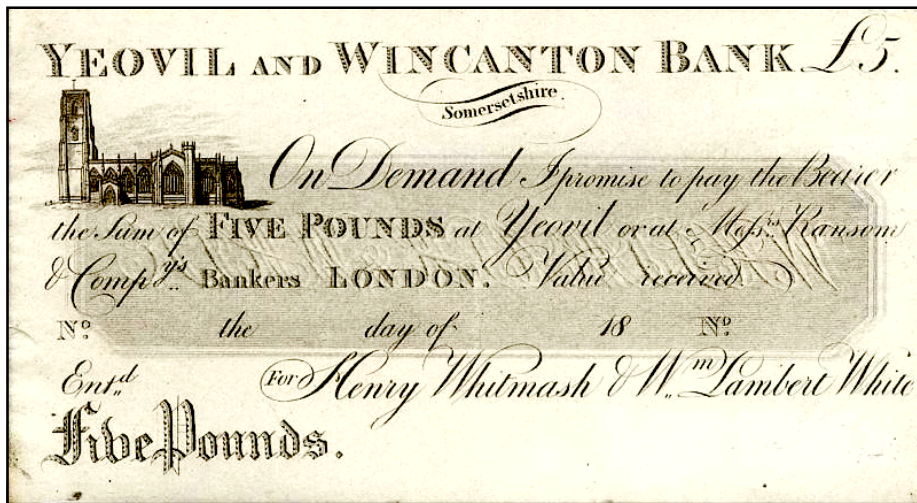 YEOVIL AND WINCANTON BANK £5.
Somersetshire.
On Demand I promise to pay the Bearer
the Sum of FIVE POUNDS at Yeovil or at Messrs. Ransom
& Compy's. Bankers LONDON. Value received
No. the day of 18 No.
Entd. For Henry Whitmash & Wm. Lambert White
Five Pounds.